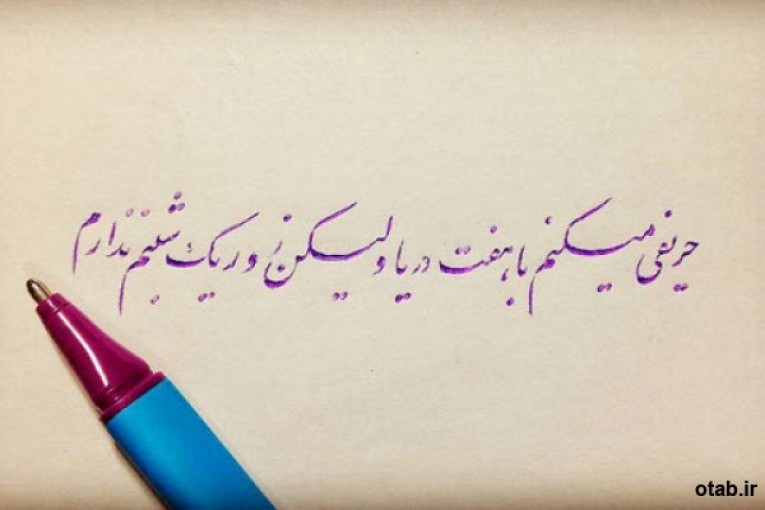 حریفی میکنم با هفت دریا ولیکن زور یک شبنم ندارم
otab.ir